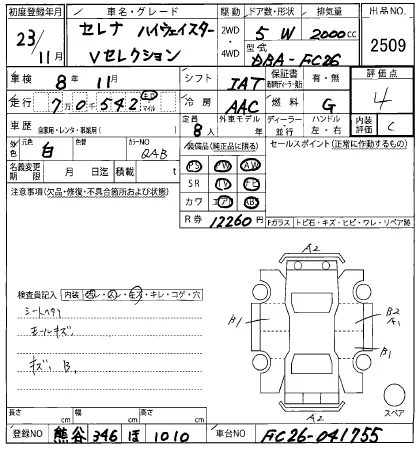 初度登録年月 車名・グレード 駆動 ドア数・形状 排気量 出品NO.
23/11月 セレナ ハイウェイスター Vセレクション 2WD・4WD 5 W 2000cc 2509
型式 DBA-FC26
車検 8年 11月 シフト IAT 保証書 有・無 評価点
走行 7万0千542 km マイル 冷房 AAC 燃料 G 4
車歴 自家用・レンタ・事業用( ) 定員 8人 外車モデル 年 ディーラー・並行 ハンドル 左・右 内装評価 C
外色 元色 白 色替 カラーNO QAB 装備品(純正品に限る) セールスポイント(正常に作動するもの)
名義変更期限 月 日迄 積載 t PS PW AW
SR TV ナビ
注意事項(欠品・修復・不具合箇所および状態) カワ エアB ABS
R券 12260円 Fガラス トビ石・キズ・ヒビ・ワレ・リペア跡
A2
検査員記入 内装 汚レ・スレ・キズ・キレ・コゲ・穴
シートヘタリ
モールキズ
キズ、B、
B1 B2 A1
B1
A2
スペア
長さ cm 幅 cm 高さ cm
登録NO 熊谷 346 ほ 1010 車台NO FC26-041755